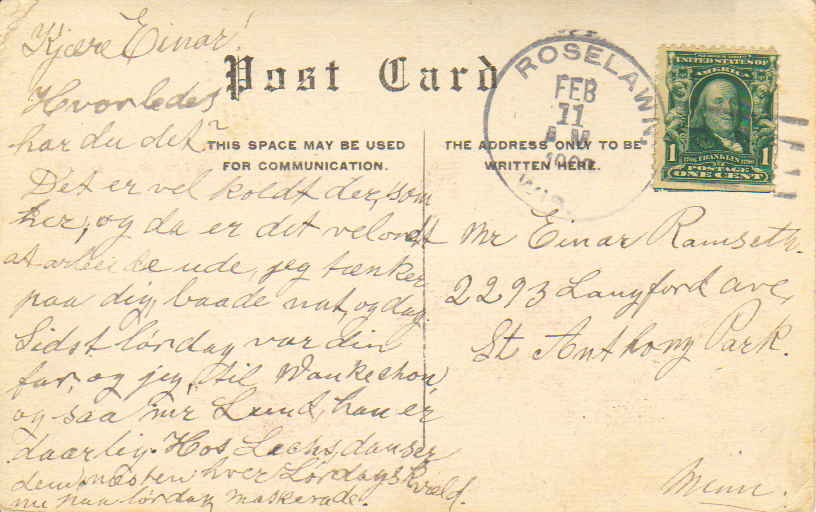 Kjære Einar!
Post Card
Hvorledes
har du det?
THIS SPACE MAY BE USED
FOR COMMUNICATION.
Det er vel koldt der, som
her, og da er det vel ondt
at arbeide ude, jeg tænker
paa dig, baade nat, og dag.
Sidst lórdag var din
far, og jeg, til
og saa mr Lund, han er
daarlig. Hos danser
dem næsten hver Lórdagsk
væld.
nu paa lórdag maskerade.
THE ADDRESS ONLY TO BE
WRITTEN HERE.
ROSELAWN
FEB
11
A M
WIS.
UNITED STATES OF
AMERICA
1706 FRANKLIN 1790
1 POSTAGE 1
ONE CENT
Mr Einar Ramseth.
2293 Langford ave,
St Anthony Park.
Minn.